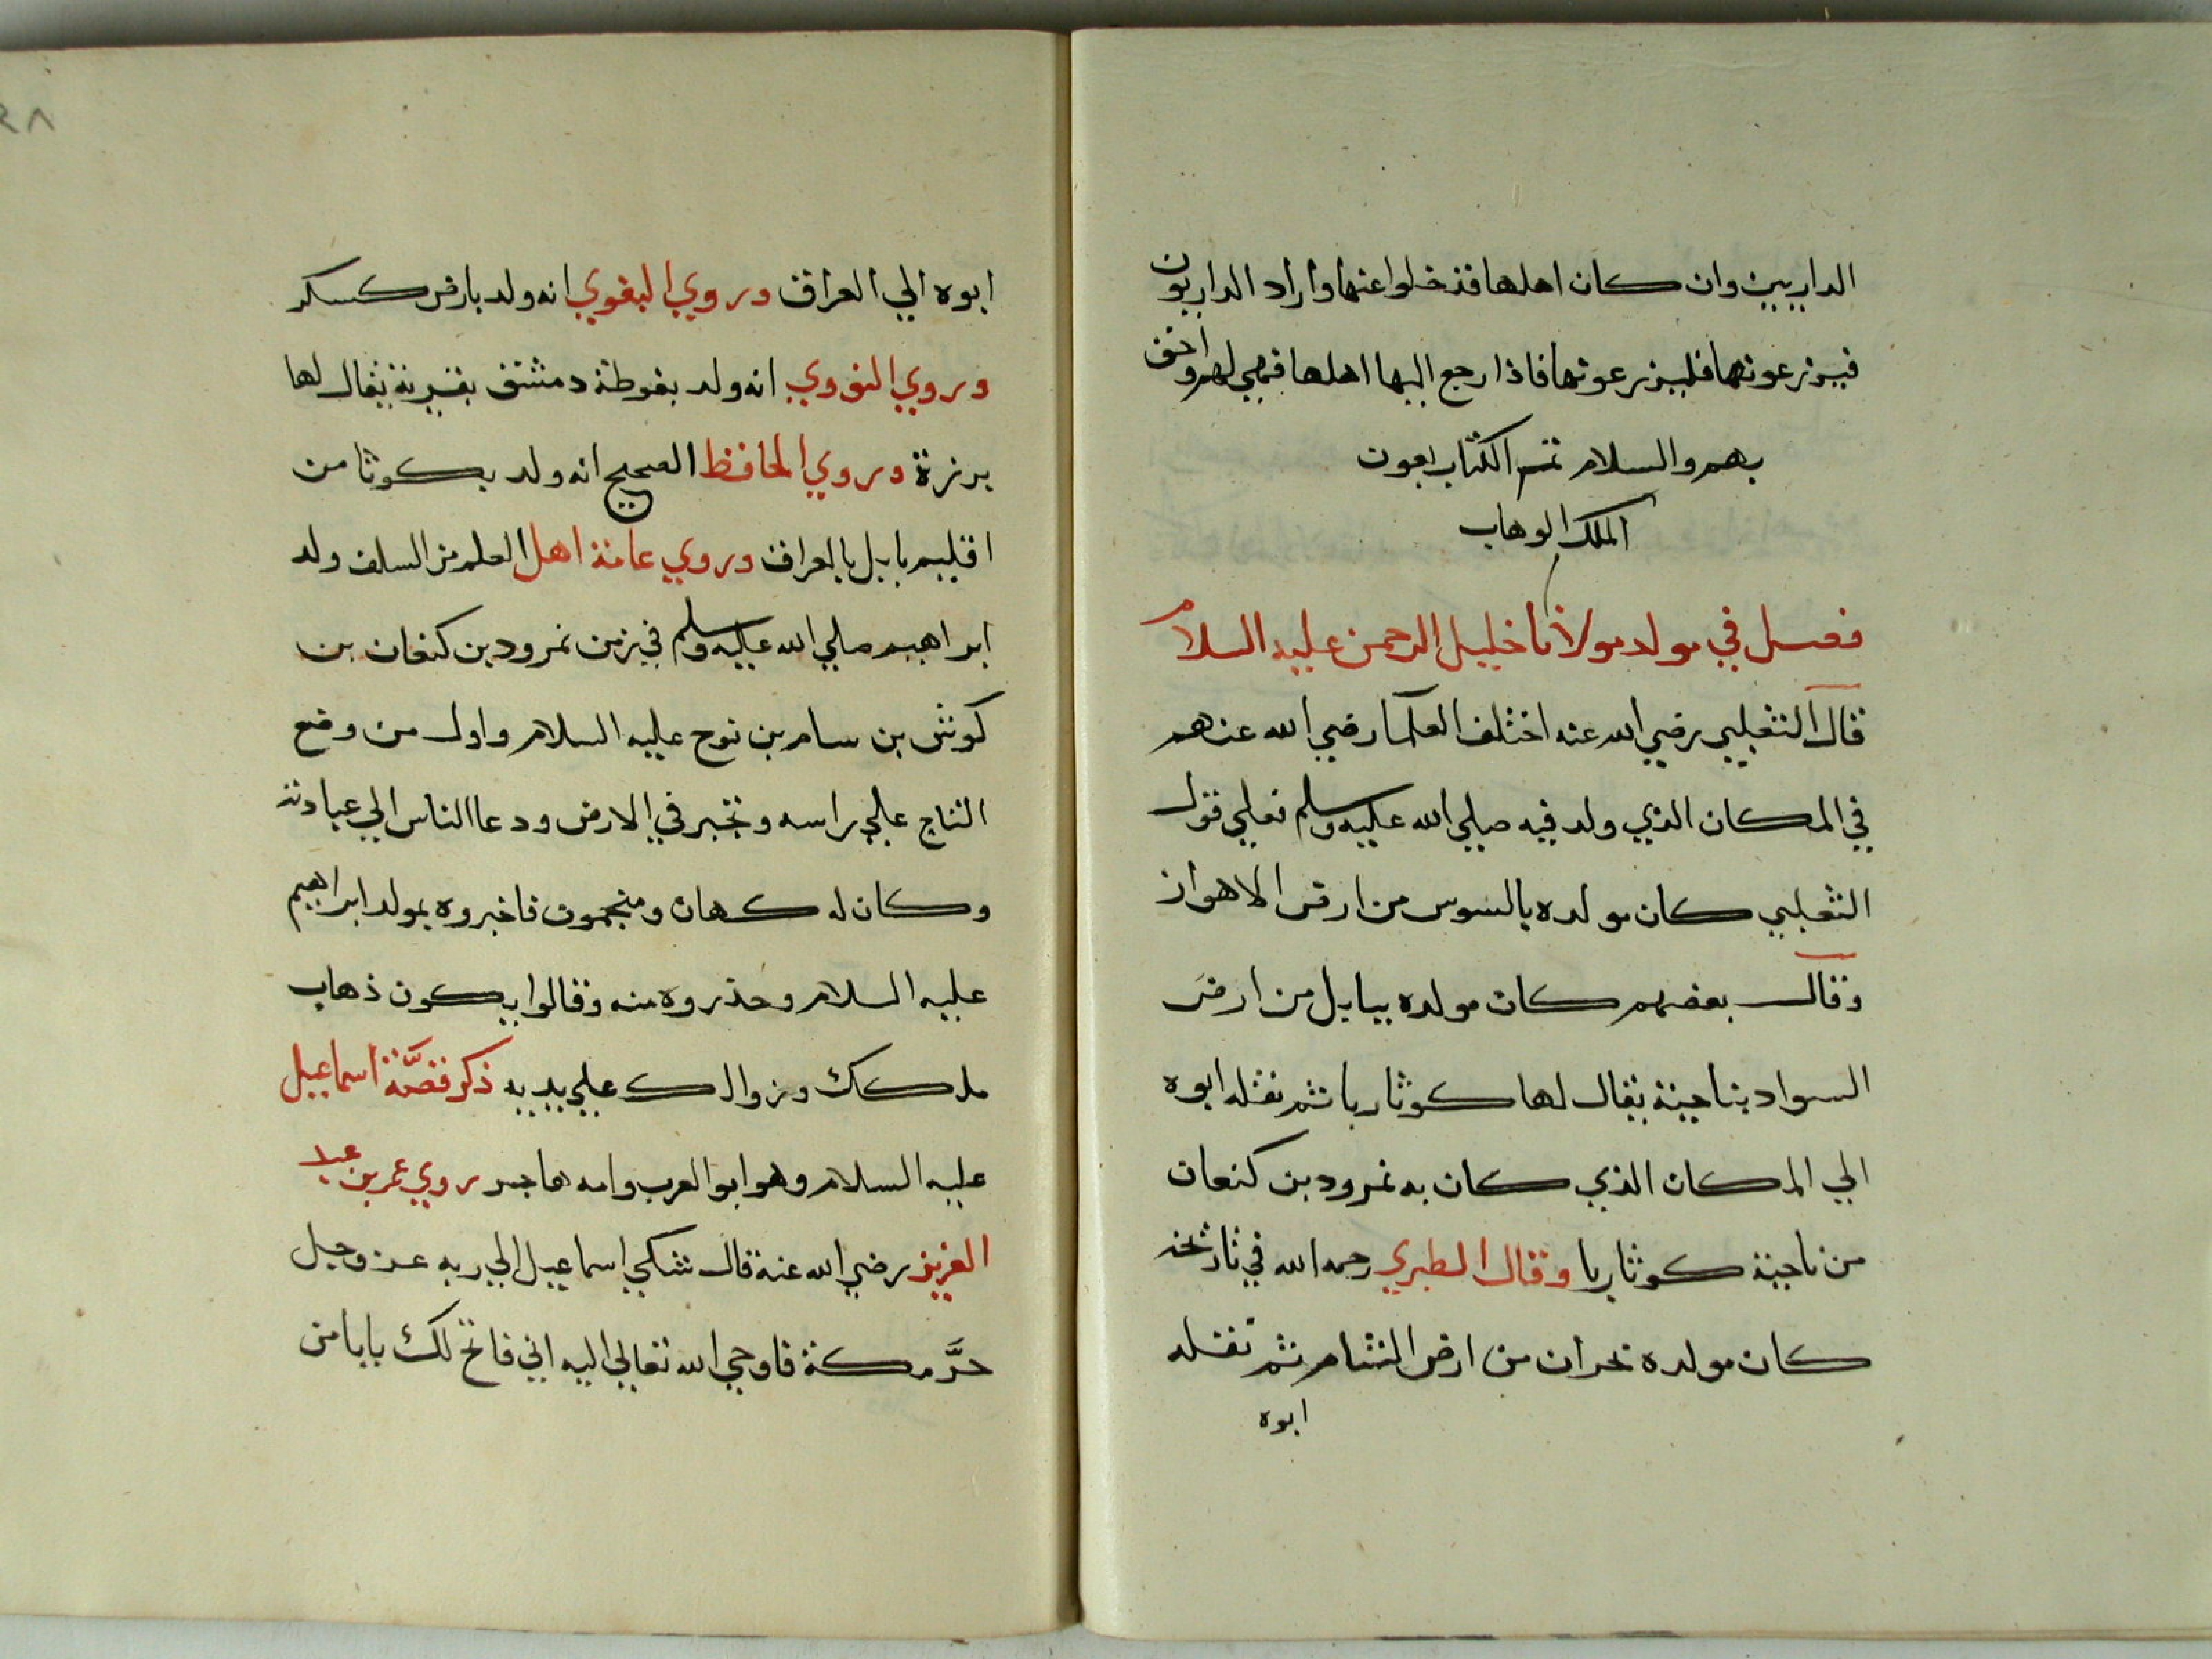 الداريين وان كان اهلها قد خلوا عنها واراد الداريون
يزرعونها فليزرعونها فاذا رجع اليها اهلها فهي لهم واحق
بهم والسلام تم الكتاب بعون
الملك الوهاب
فصل في مولد مولانا خليل الرحمن عليه السلام
قال الثعلبي رضي الله عنه اختلف العلما رضي الله عنهم
في المكان الذي ولد فيه صلي الله عليه وسلم فعلي قول
الثعلبي كان مولده بالسوس من ارض الاهواز
وقال بعضهم كان مولده ببابل من ارض
السواد بناحية يقال لها كوثا ربا ثم نقله ابوه
الي المكان الذي كان به نمرود بن كنعان
من ناحية كوثا ربا وقال الطبري رحمه الله في تاريخه
كان مولده بحران من ارض الشام ثم نقله
ابوه
٢٨
ابوه الي العراق وروي البغوي انه ولد بارض كسكر
وروي النووي انه ولد بغوطة دمشق بقرية يقال لها
برزة وروي الحافظ الصحيح انه ولد بكوثا من
اقليم بابل بالعراق وروي عامة اهل العلم من السلف ولد
ابراهيم صلي الله عليه وسلم في زمن نمرود بن كنعان بن
كوش بن سام بن نوح عليه السلام واول من وضع
التاج علي راسه وتجبر في الارض ودعا الناس الي عبادته
وكان له كهان ومنجمون فاخبروه بمولد ابراهيم
عليه السلام وحذروه منه وقالوا يكون ذهاب
ملكك وزوالك علي يديه ذكر قصّة اسماعيل
عليه السلام وهو ابو العرب وامه هاجر روي عمر بن عبد
العزيز رضي الله عنه قال شكي اسماعيل الي ربه عز وجل
حرَّ مكة فاوحي الله تعالي اليه اني فاتح لك بابا من